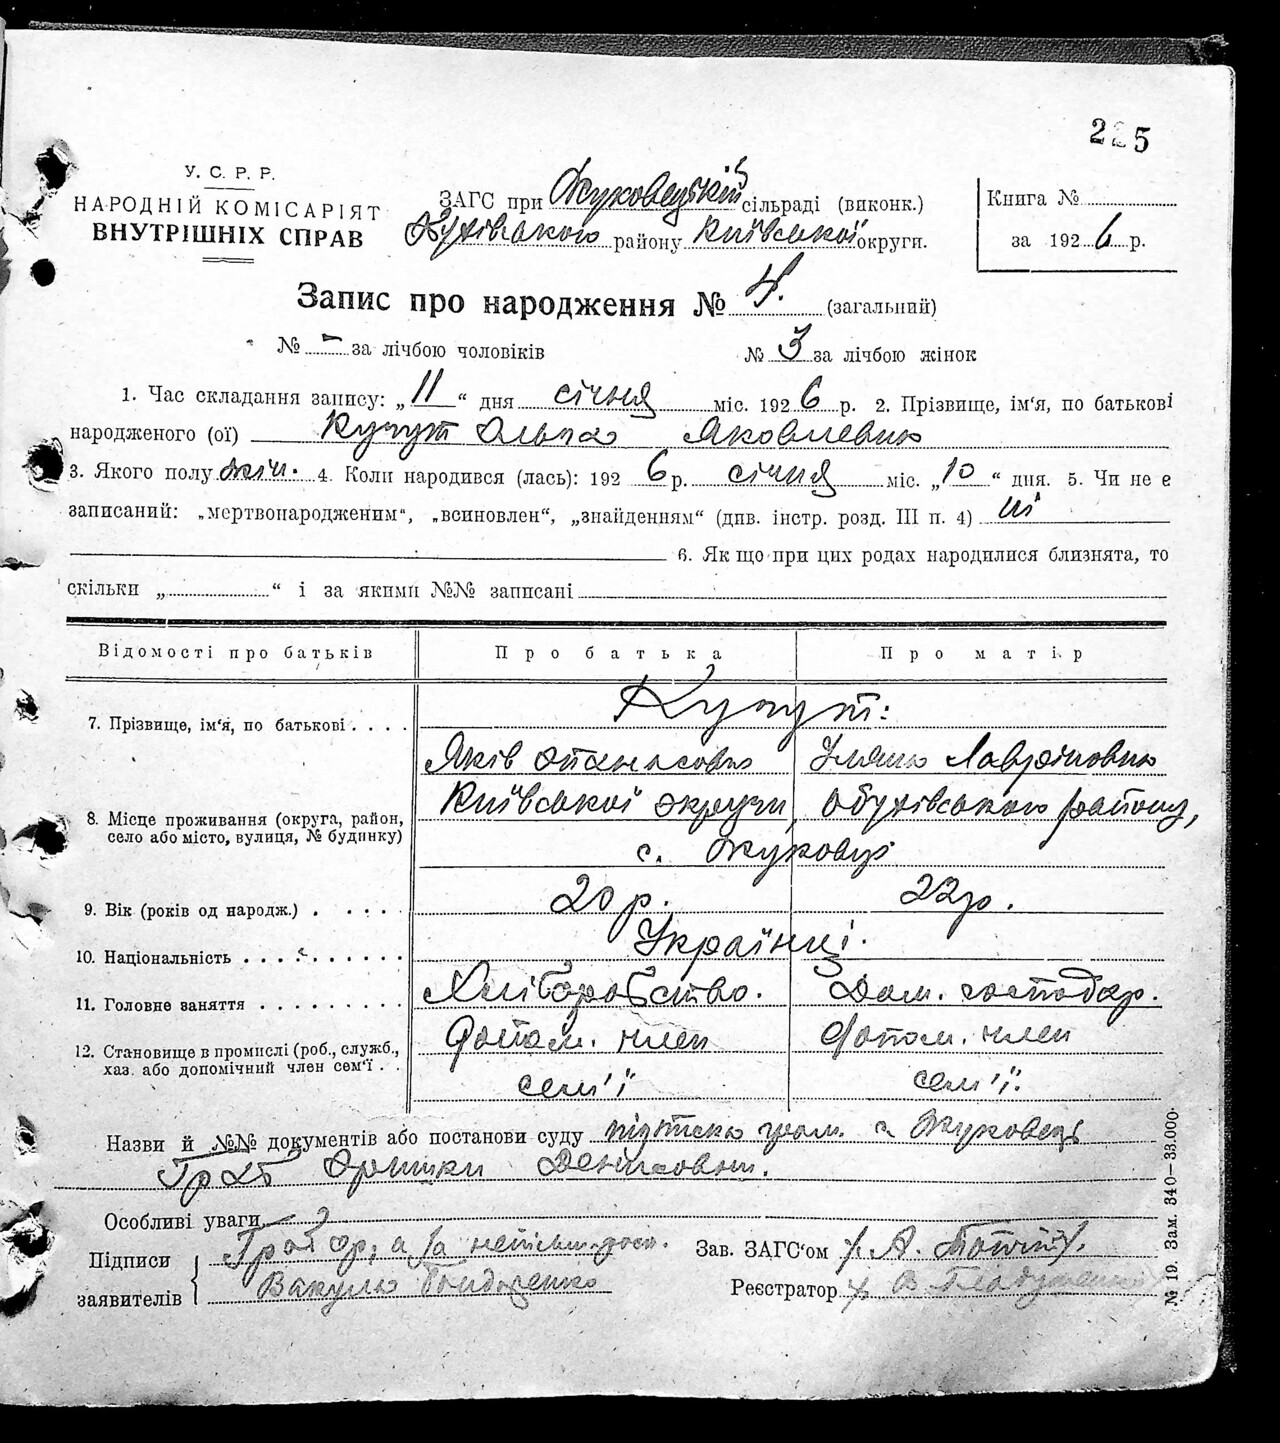 225
У. С. Р. Р.
НАРОДНІЙ КОМІСАРІЯТ
ВНУТРІШНІХ СПРАВ
ЗАГС при Жуковецькій сільраді (виконк.)
Обухівського району Київської округи.
Книга №
за 1926 р.
Запис про народження № 4. (загальний)
№ - за лічбою чоловіків № 3 за лічбою жінок
1. Час складання запису: „11“ дня січня міс. 1926 р. 2. Прізвище, ім'я, по батькові
народженого (ої) Кучут Ольга Яковлевна
3. Якого полу жін. 4. Коли народився (лась): 1926 р. січня міс. „10“ дня. 5. Чи не є
записаний: „мертвонародженим“, „всиновлен“, „знайденням“ (див. інстр. розд. III п. 4) ні
6. Якщо при цих родах народилися близнята, то
скільки „ “ і за якими №№ записані
Відомості про батьків Про батька Про матір
7. Прізвище, ім'я, по батькові Кучут:
Яків Опанасович Уляна Лавріновна
8. Місце проживання (округа, район, село або місто, вулиця, № будинку) Київської округи, Обухівського району,
с. Жуковці
9. Вік (років од народж.) 20 р. 22 р.
10. Національність Українці.
11. Головне заняття Хліборобство. Дом. господар.
12. Становище в промислі (роб., служб., хаз. або допомічний член сем'ї Допом. член Допом. член
сем'ї сем'ї.
Назви й №№ документів або постанови суду гром. с. Жуковець
Оришки Денисовни.
Особливі уваги
Підписи а за неписьм.
заявителів Вакула Бондаренко
Зав. ЗАГС'ом /А.
Реєстратор / В
№ 19. Зам. 340—33.000